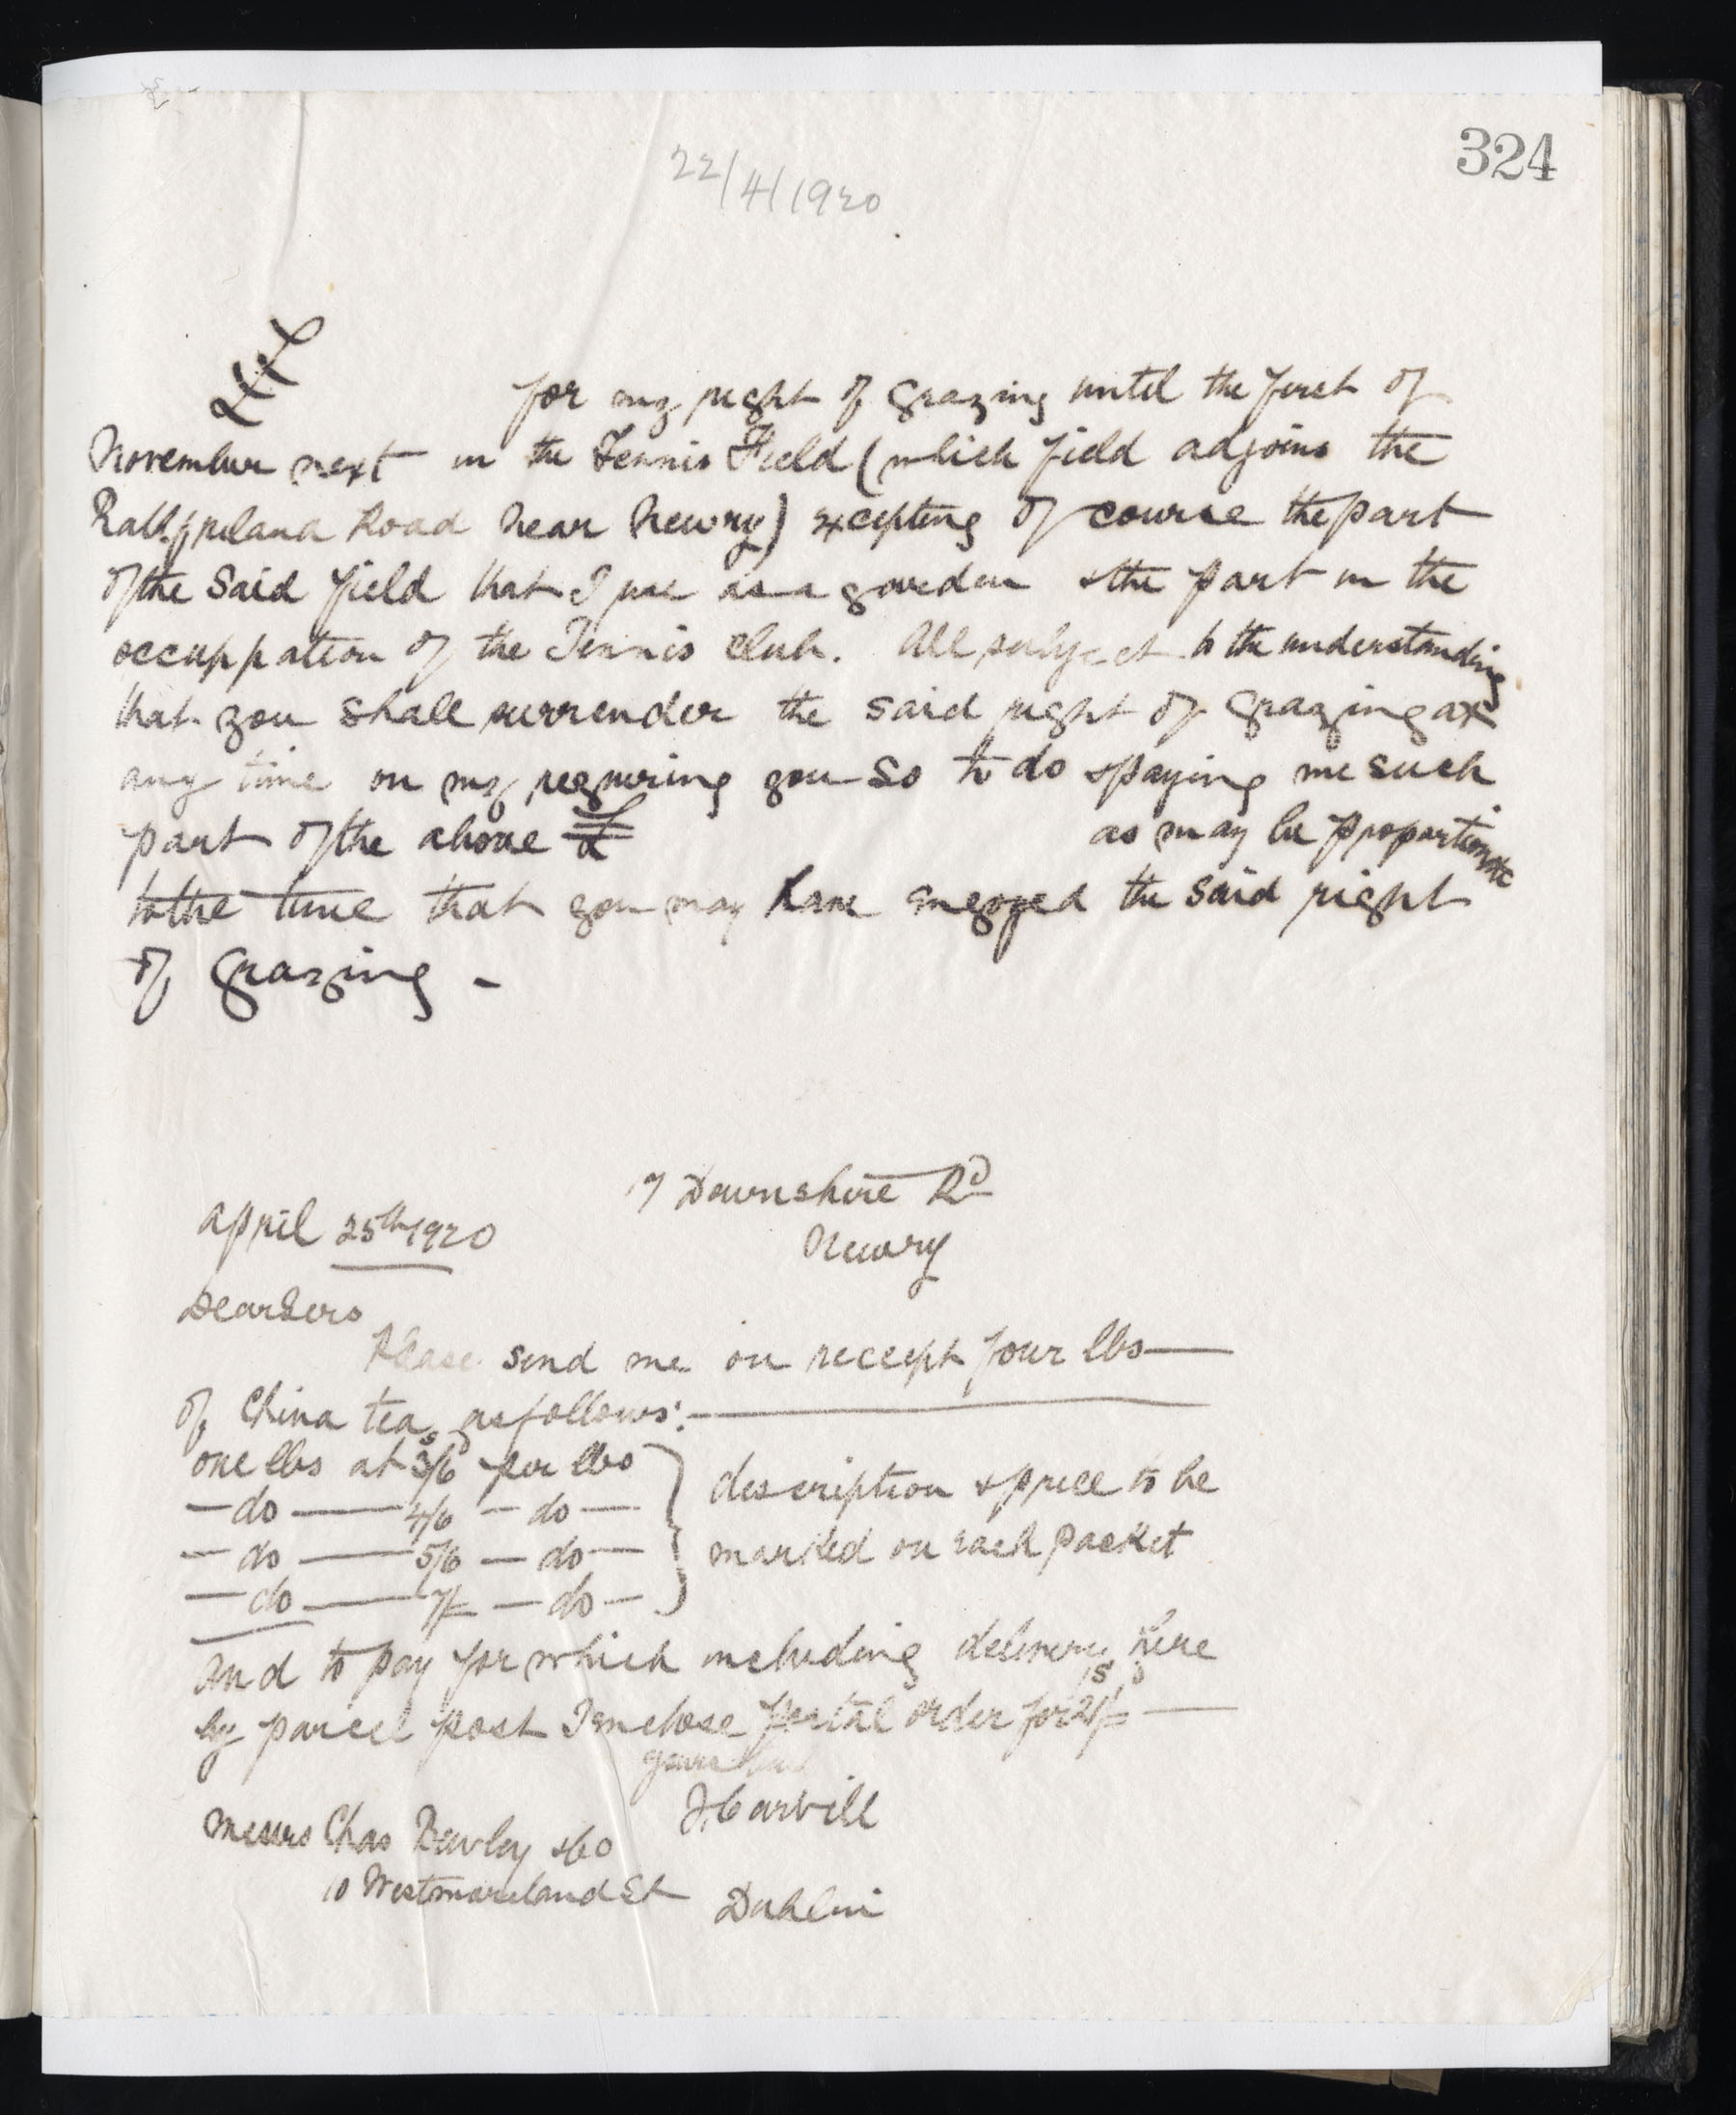 324
22/4/1920
£
for my right of grazing until the first of
November next in the Tennis Field (which field adjoins the
Road near Newry) excepting of course the part
of the said field that I use as a garden & the part in the
occuppation of the Tennis Club. All subject to the understanding
that you shall surrender the said right of grazing at
any time on my requiring you so to do & paying me such
part of the above £ as may be proportionate
to the time that you may have enjoyed the said right
of grazing -
7 Downshire Rd
April 25th 1920
Newry
Dear Sirs
Please send me on receipt four lbs
of China tea, as follows:-
one lbs at 3/6 per lbs
- do - 4/6 - do -
- do - 5/6 - do -
- do - 7/= - do -
description & price to be
marked on each packet
and to pay for which including delivery here
by parcel post I enclose postal order for 21/=
yours
J Carvill
Messrs Chas Bewley & Co
10 Westmoreland St
Dublin